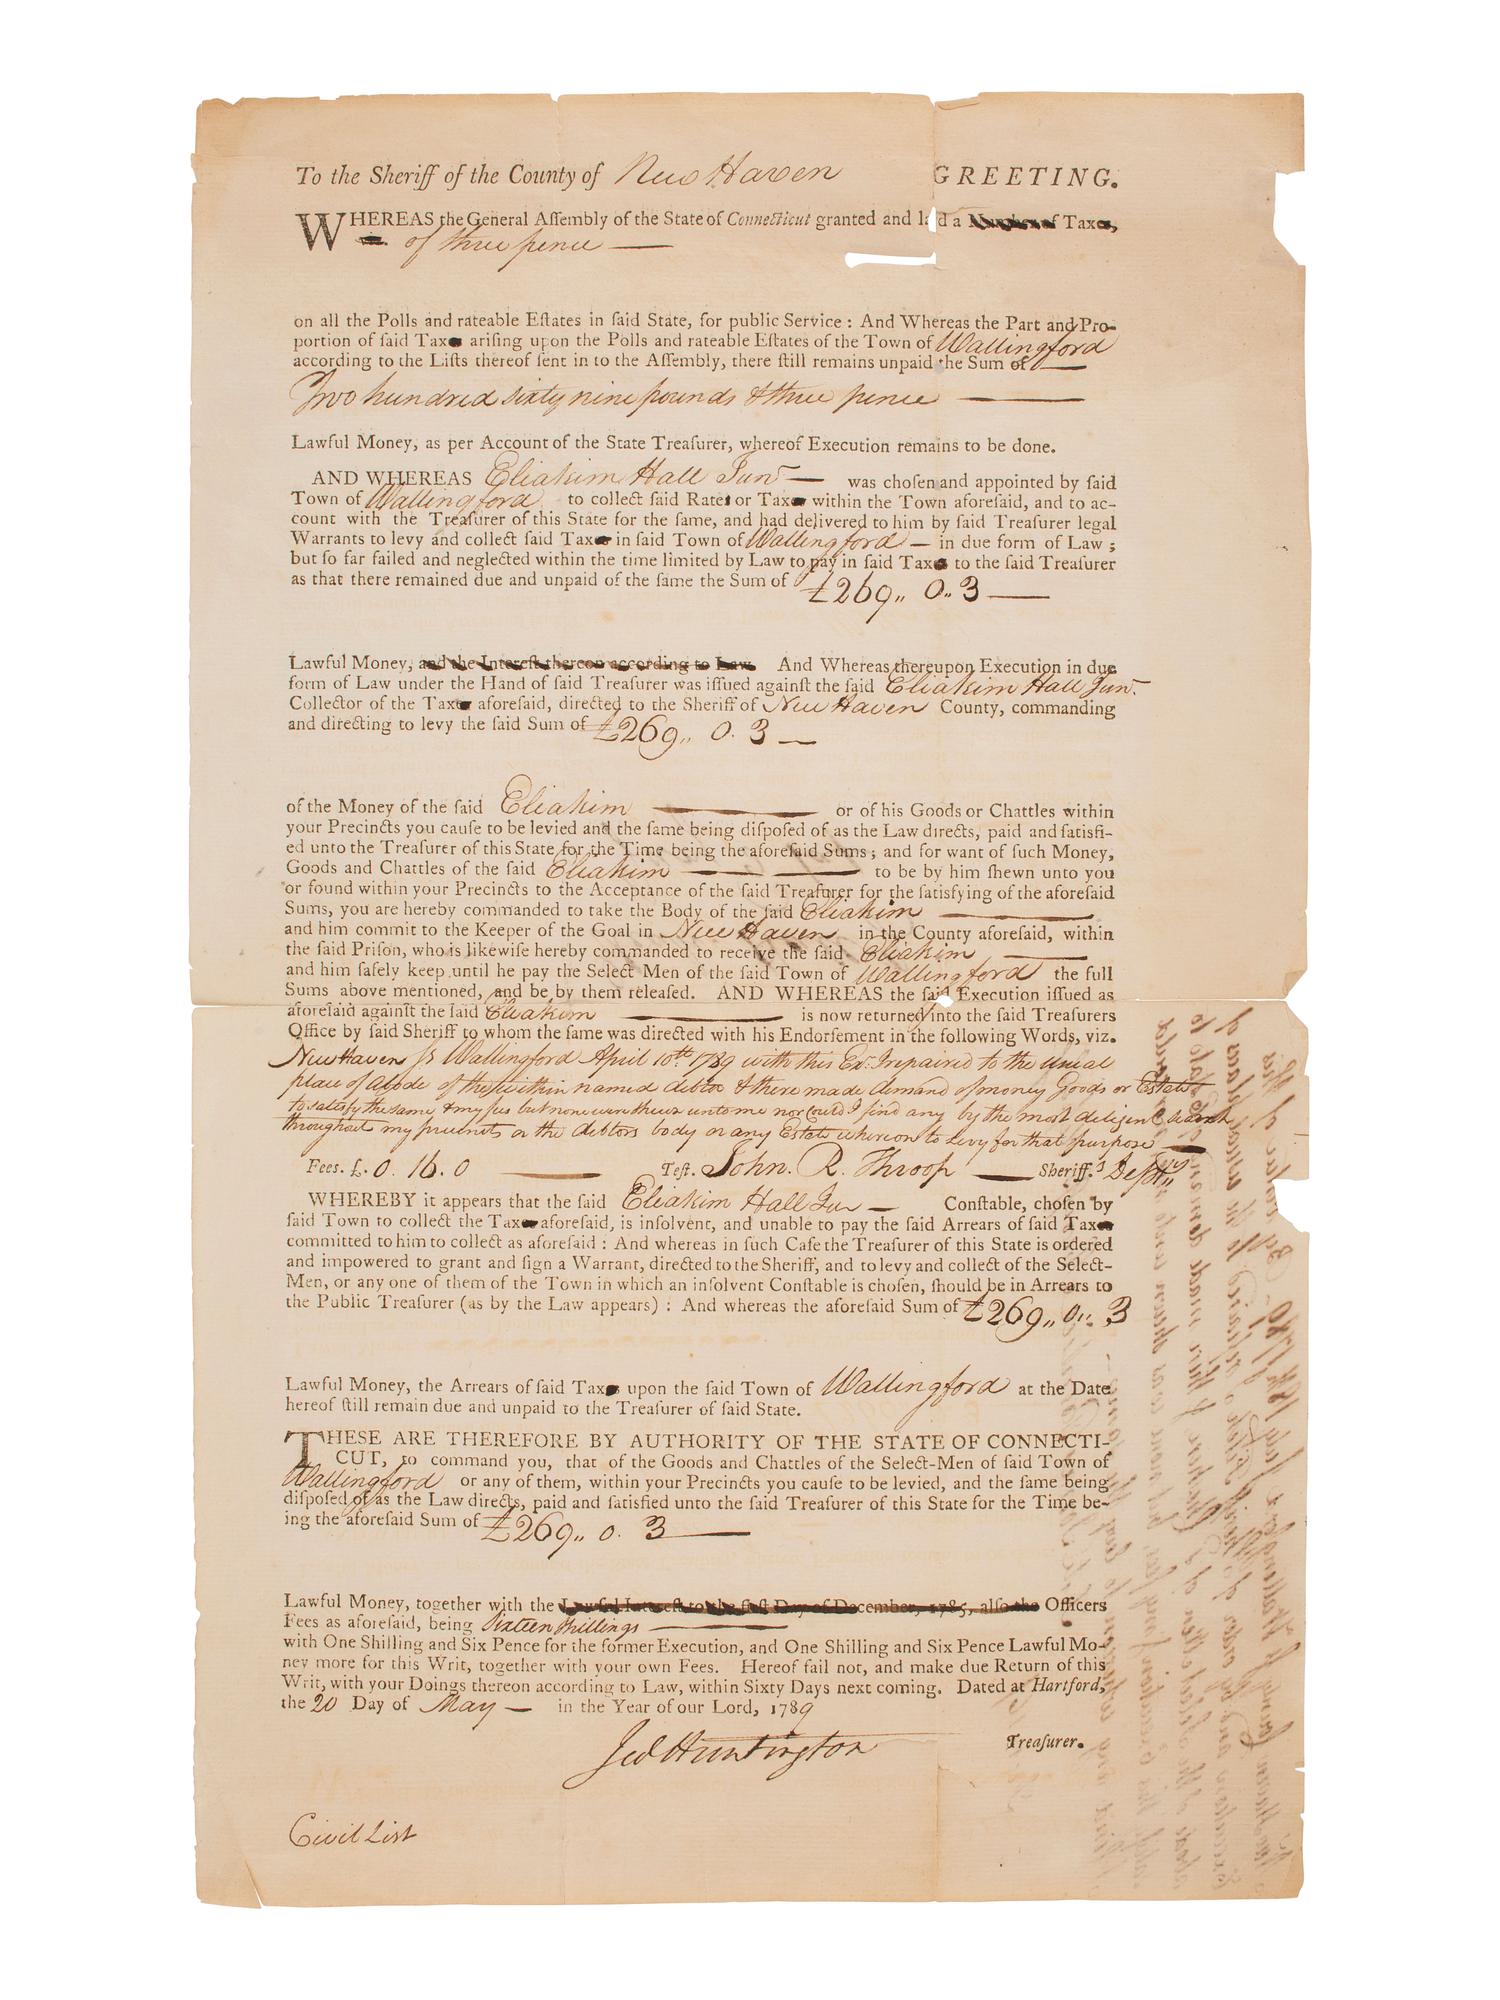 To the Sheriff of the County of New Haven GREETING.
WHEREAS the General Aſſembly of the State of Connecticut granted and laid a Number of Taxes,
viz. of three pence —
on all the Polls and rateable Eſtates in ſaid State, for public Service : And Whereas the Part and Pro-
portion of ſaid Tax ariſing upon the Polls and rateable Eſtates of the Town of Wallingford
according to the Liſts thereof ſent in to the Aſſembly, there ſtill remains unpaid the Sum of —
Two hundred sixty nine pounds & three pence —
Lawful Money, as per Account of the State Treaſurer, whereof Execution remains to be done.
AND WHEREAS Eliakim Hall Junr — was choſen and appointed by ſaid
Town of Wallingford to collect ſaid Rate or Tax within the Town aforeſaid, and to ac-
count with the Treaſurer of this State for the ſame, and had delivered to him by ſaid Treaſurer legal
Warrants to levy and collect ſaid Tax in ſaid Town of Wallingford — in due form of Law ;
but ſo far failed and neglected within the time limited by Law to pay in ſaid Tax to the ſaid Treaſurer
as that there remained due and unpaid of the ſame the Sum of £269,, 0,, 3 —
Lawful Money, and the Intereſt thereon according to Law. And Whereas thereupon Execution in due
form of Law under the Hand of ſaid Treaſurer was iſſued againſt the ſaid Eliakim Hall Junr.
Collector of the Tax aforeſaid, directed to the Sheriff of New Haven County, commanding
and directing to levy the ſaid Sum of £269,, 0. 3 —
of the Money of the ſaid Eliakim — or of his Goods or Chattles within
your Precincts you cauſe to be levied and the ſame being diſpoſed of as the Law directs, paid and ſatisfi-
ed unto the Treaſurer of this State for the Time being the aforeſaid Sums ; and for want of ſuch Money,
Goods and Chattles of the ſaid Eliakim — — to be by him ſhewn unto you
or found within your Precincts to the Acceptance of the ſaid Treaſurer for the ſatisfying of the aforeſaid
Sums, you are hereby commanded to take the Body of the ſaid Eliakim —
and him commit to the Keeper of the Goal in New Haven in the County aforeſaid, within
the ſaid Priſon, who is likewiſe hereby commanded to receive the ſaid Eliakim —
and him ſafely keep until he pay the Select Men of the ſaid Town of Wallingford the full
Sums above mentioned, and be by them releaſed. AND WHEREAS the ſaid Execution iſſued as
aforeſaid againſt the ſaid Eliakim — is now returned into the ſaid Treaſurers
Office by ſaid Sheriff to whom the ſame was directed with his Endorſement in the following Words, viz.
New Haven Ss Wallingford April 10th 1789 with this Ex. I repaired to the usual
place of abode of the within named debtor & there made demand of money Goods or Estate
to satisfy the same & my fees but none were shewn unto me nor Could I find any by the most diligent Search
throughout my precincts or the debtors body or any Estate whereon to Levy for that purpose —
Fees. £. 0. 16. 0 — Teſt. John. R. Throop — Sheriff.s Depty
WHEREBY it appears that the ſaid Eliakim Hall Ju — Conſtable, choſen by
ſaid Town to collect the Tax aforeſaid, is inſolvent, and unable to pay the ſaid Arrears of ſaid Tax
committed to him to collect as aforeſaid : And whereas in ſuch Caſe the Treaſurer of this State is ordered
and impowered to grant and ſign a Warrant, directed to the Sheriff, and to levy and collect of the Select-
Men, or any one of them of the Town in which an inſolvent Conſtable is choſen, ſhould be in Arrears to
the Public Treaſurer (as by the Law appears) : And whereas the aforeſaid Sum of £269,, 0,, 3
Lawful Money, the Arrears of ſaid Tax upon the ſaid Town of Wallingford at the Date
hereof ſtill remain due and unpaid to the Treaſurer of ſaid State.
THESE ARE THEREFORE BY AUTHORITY OF THE STATE OF CONNECTI-
CUT, to command you, that of the Goods and Chattles of the Select-Men of ſaid Town of
Wallingford or any of them, within your Precincts you cauſe to be levied, and the ſame being
diſpoſed of as the Law directs, paid and ſatisfied unto the ſaid Treaſurer of this State for the Time be-
ing the aforeſaid Sum of £269,, 0. 3 —
Lawful Money, together with the Lawful Intereſt to the firſt Day of December, 1785, alſo the Officers
Fees as aforeſaid, being Sixteen Shillings —
with One Shilling and Six Pence for the former Execution, and One Shilling and Six Pence Lawful Mo-
ney more for this Writ, together with your own Fees. Hereof fail not, and make due Return of this
Writ, with your Doings thereon according to Law, within Sixty Days next coming. Dated at Hartford,
the 20 Day of May — in the Year of our Lord, 1789
Jed Huntington Treaſurer.
Civil List